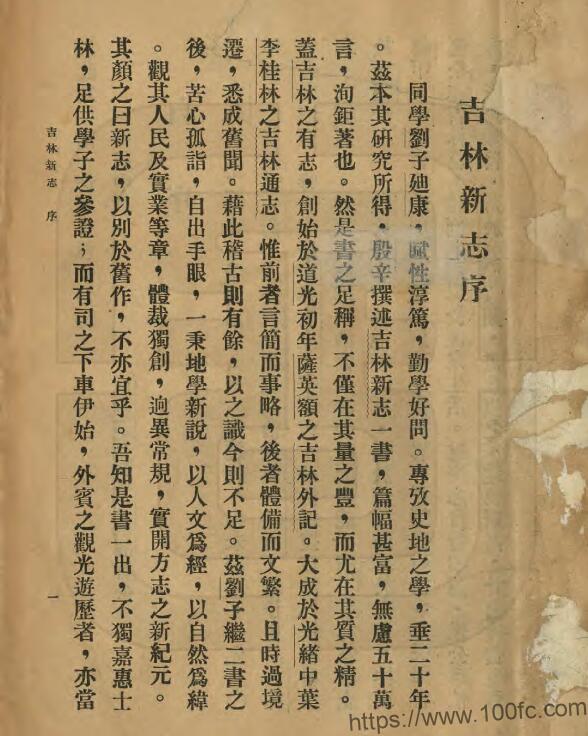 吉林新志序
同學劉子廸康，賦性淳篤，勤學好問。專攷史地之學，垂二十年
。茲本其研究所得，殷辛撰述吉林新志一書，篇幅甚富，無慮五十萬
言，洵鉅著也。然是書之足稱，不僅在其量之豐，而尤在其質之精。
蓋吉林之有志，創始於道光初年薩英額之吉林外記。大成於光緒中葉
李桂林之吉林通志。惟前者言簡而事略，後者體備而文繁。且時過境
遷，悉成舊聞。藉此稽古則有餘，以之識今則不足。茲劉子繼二書之
後，苦心孤詣，自出手眼，一秉地學新說，以人文爲經，以自然爲緯
。觀其人民及實業等章，體裁獨創，逈異常規，實開方志之新紀元。
其顏之曰新志，以別於舊作，不亦宜乎。吾知是書一出，不獨嘉惠士
林，足供學子之參證；而有司之下車伊始，外賓之觀光遊歷者，亦當
吉林新志 序
一
https://www.100fc.com